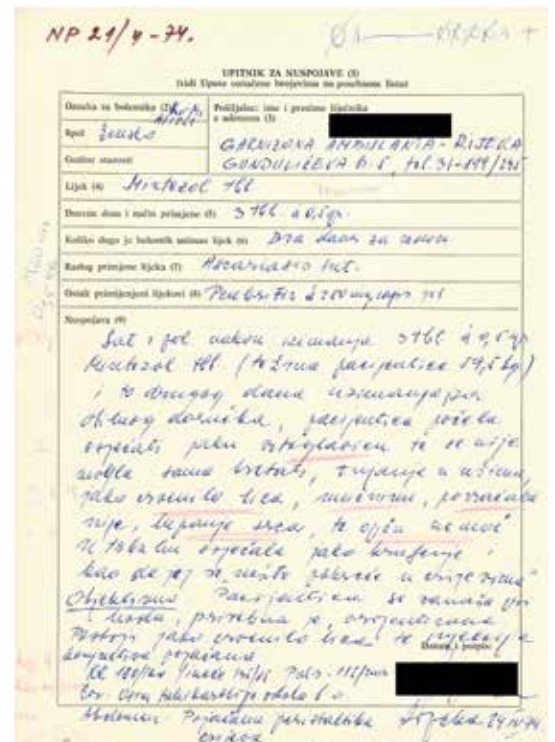 NP 21/4-74.
UPITNIK ZA NUSPOJAVE (3)
(vidi Upute označene brojevima na posebnom listu)
Oznaka za bolesnika (2)
Pošiljalac: ime i prezime liječnika s adresom (3)
Spol žensko
GARNIZONA AMBULANTA - RIJEKA
Godine starosti
GUNDULIĆEVA B.B, tel. 31-199/295
Lijek (4) Mintezol tbl
Dnevna doza i način primjene (5) 3 tbl á 0,5 gr.
Koliko dugo je bolesnik uzimao lijek (6) Dva dana za redom.
Razlog primjene lijeka (7) Ascariasis int.
Ostali primijenjeni lijekovi (8) Penbritin á 250 mg caps
Nuspojava (9)
Sat i pol nakon uzimanja 3 tbl á 0,5 gr
Mintezol tbl. (težina pacijentice 59,5 kg)
i to drugog dana uzimanja
obilnog doručka, pacijentica počela
osjećati jaku vrtoglavicu te se nije
mogla sama kretati, zujanje u ušima,
jako crvenilo lica, mučninu, povraćala
nije, lupanje srca, te opću nemoć
U trbuhu osjećala jako kruljenje i
kao da joj se nešto
Objektivno Pacijentica se zanaša pri
hodu, prisebna je, orjentirana
Postoji jako crvenilo lica te injekcija
konjuktiva pojačana
Datum i potpis:
RR Puls - 112/min
Cor. 
Abdomen Pojačana peristaltika
crijeva
Rijeka 24 IV 74.